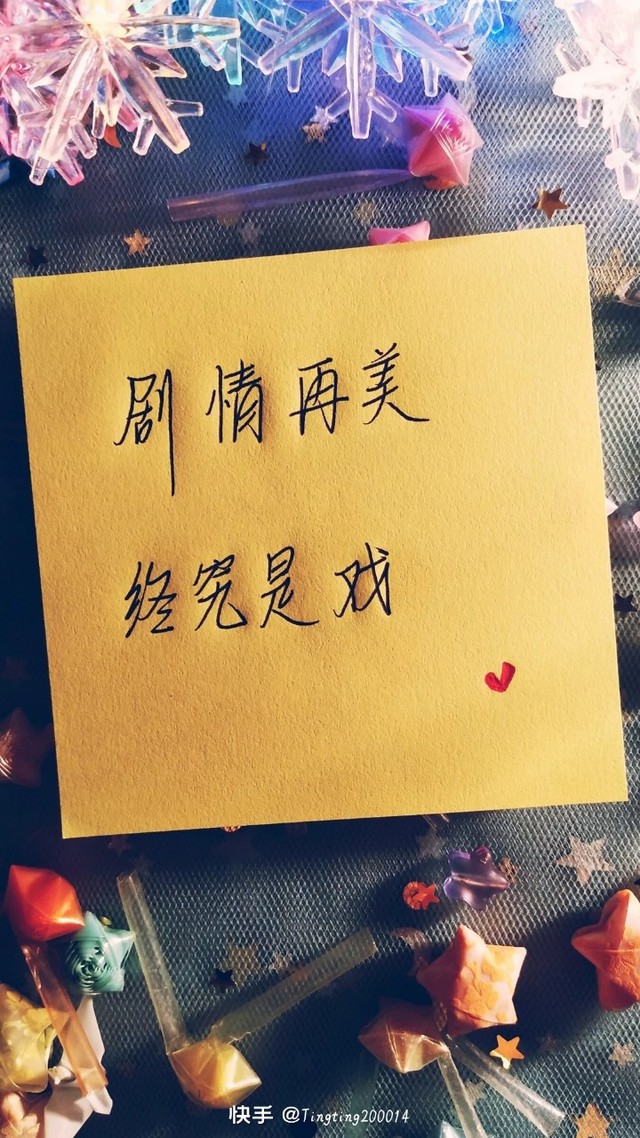 剧情再美
终究是戏
快手 @Tingting200014